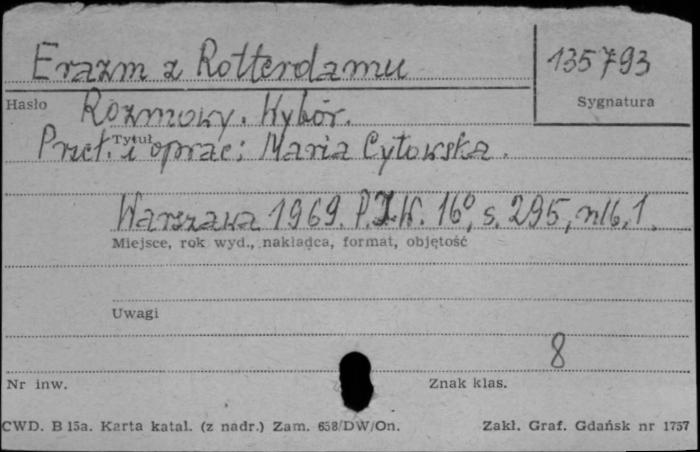 Erazm z Rotterdamu
135793
Hasło
Sygnatura
Rozmowy. Wybór.
Tytuł
Przeł. i oprac: Maria Cytowska.
Warszawa 1969. P.I.W. 16°, s. 295, nlb. 1.
Miejsce, rok wyd., nakładca, format, objętość
Uwagi
8
Nr inw.
Znak klas.
CWD. B 15a. Karta katal. (z nadr.) Zam. 658/DW/On.
Zakł. Graf. Gdańsk nr 1757